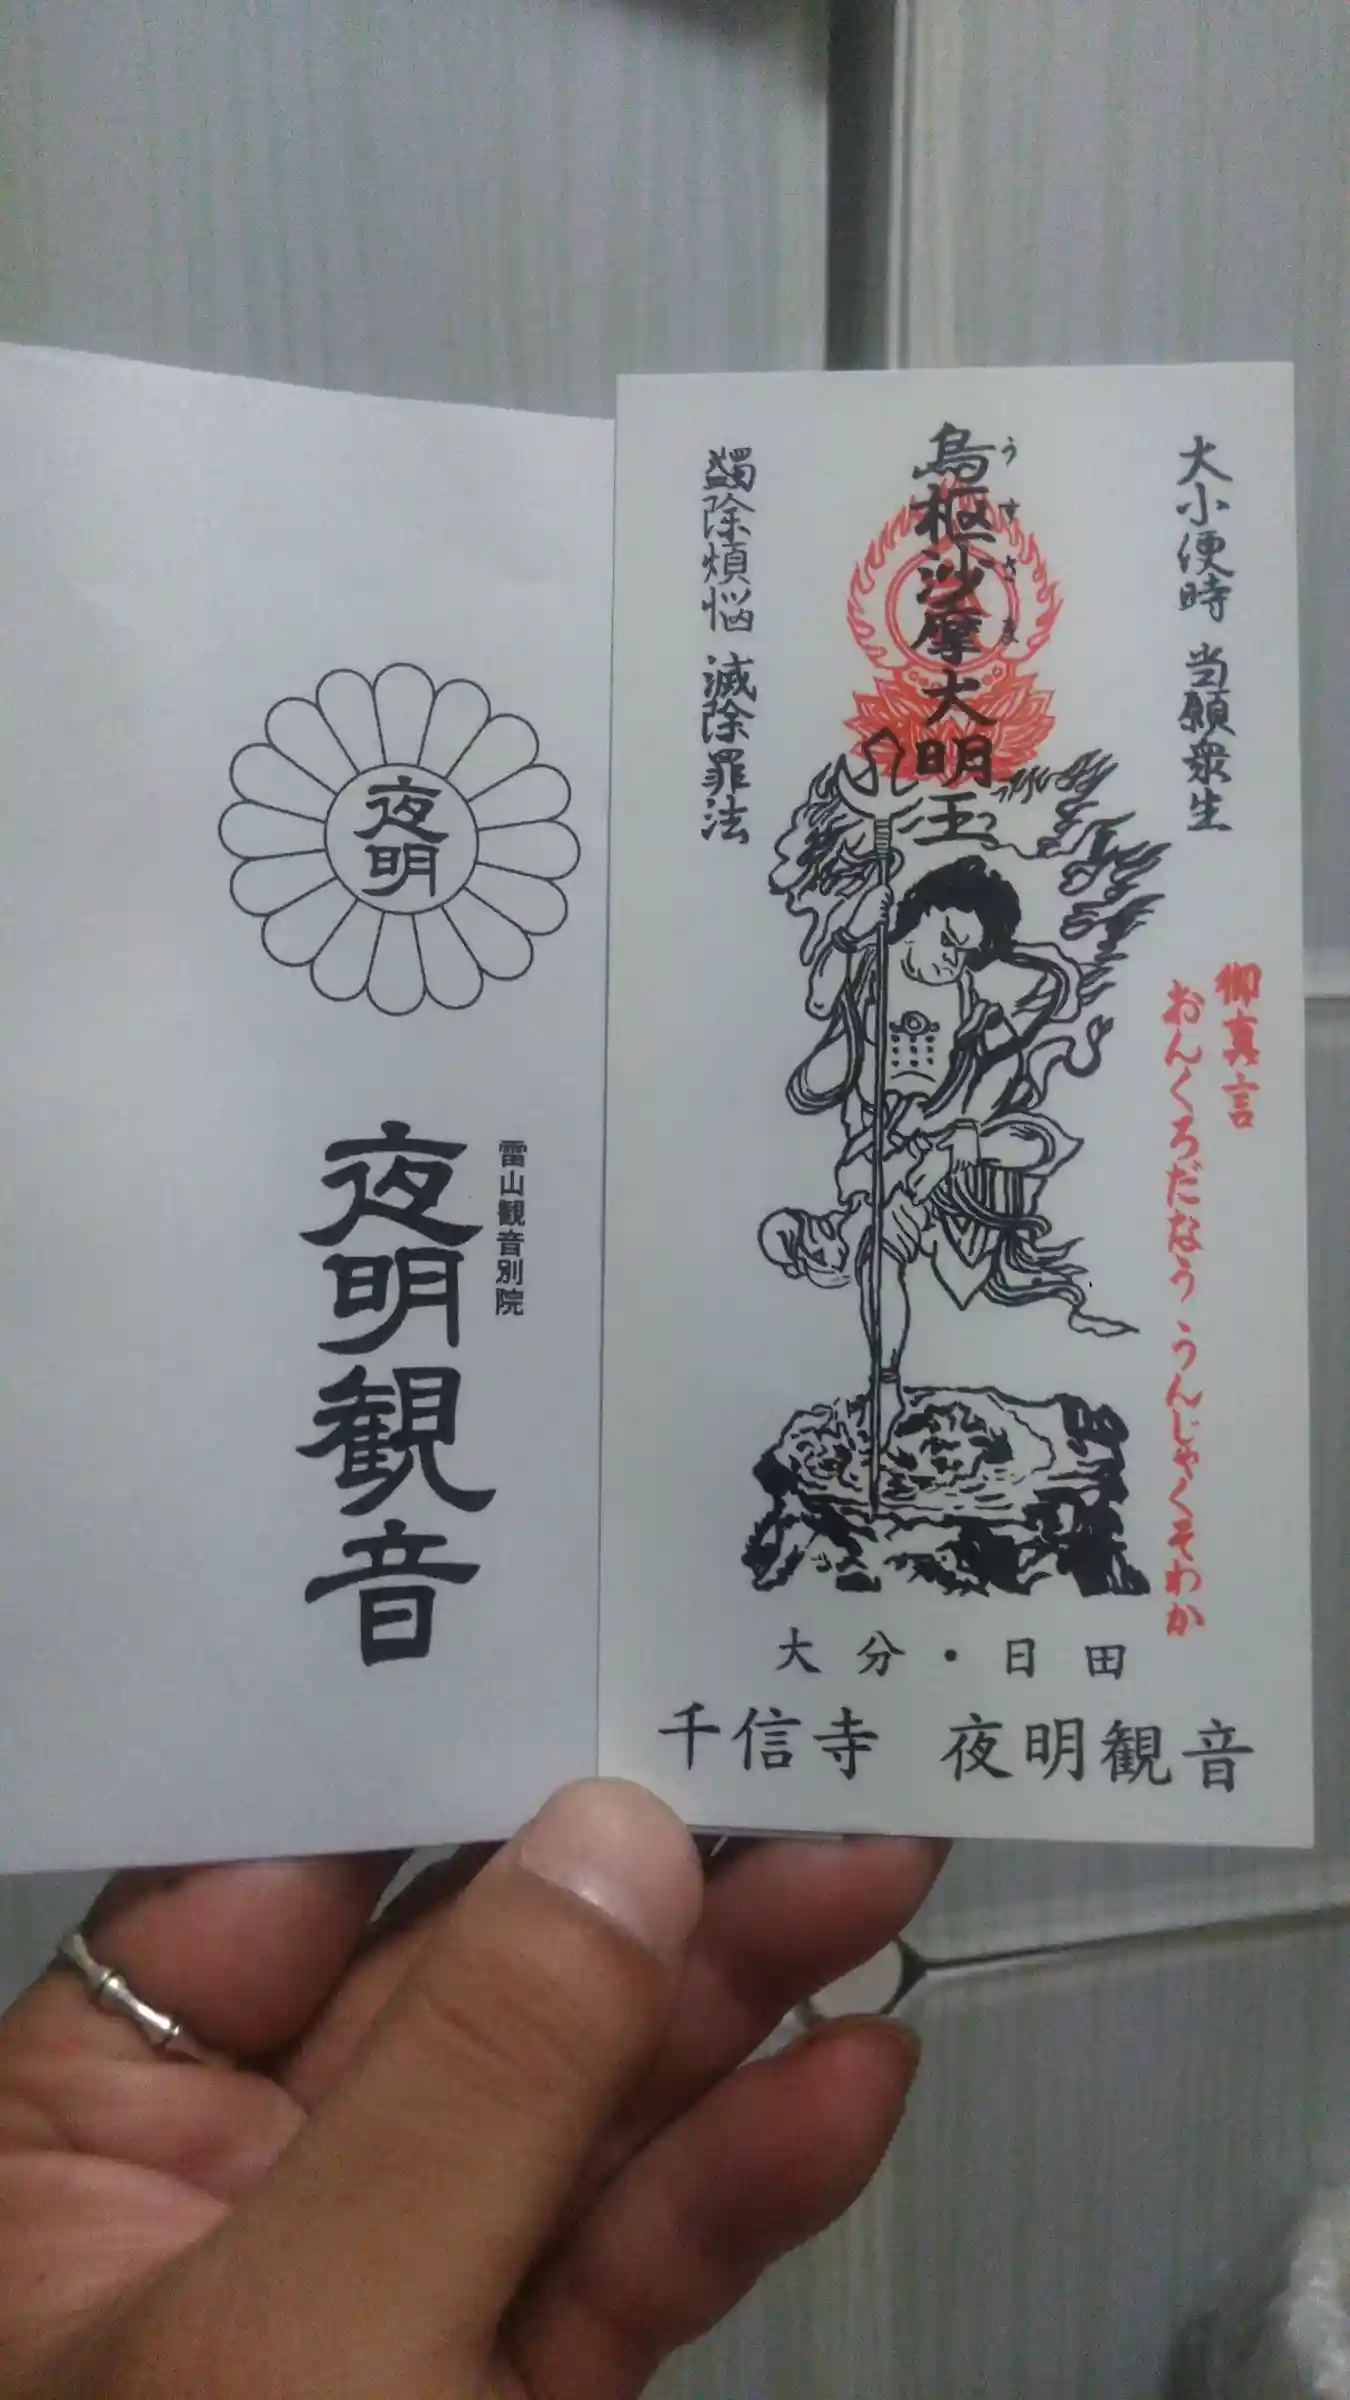 大小便時 当願衆生
烏枢沙摩大明王
うすさま
蠲除煩悩 滅除罪法
御真言
おんくろだなう うんじゃくそわか
大分・日田
千信寺 夜明観音
夜明
雷山観音別院
夜明観音